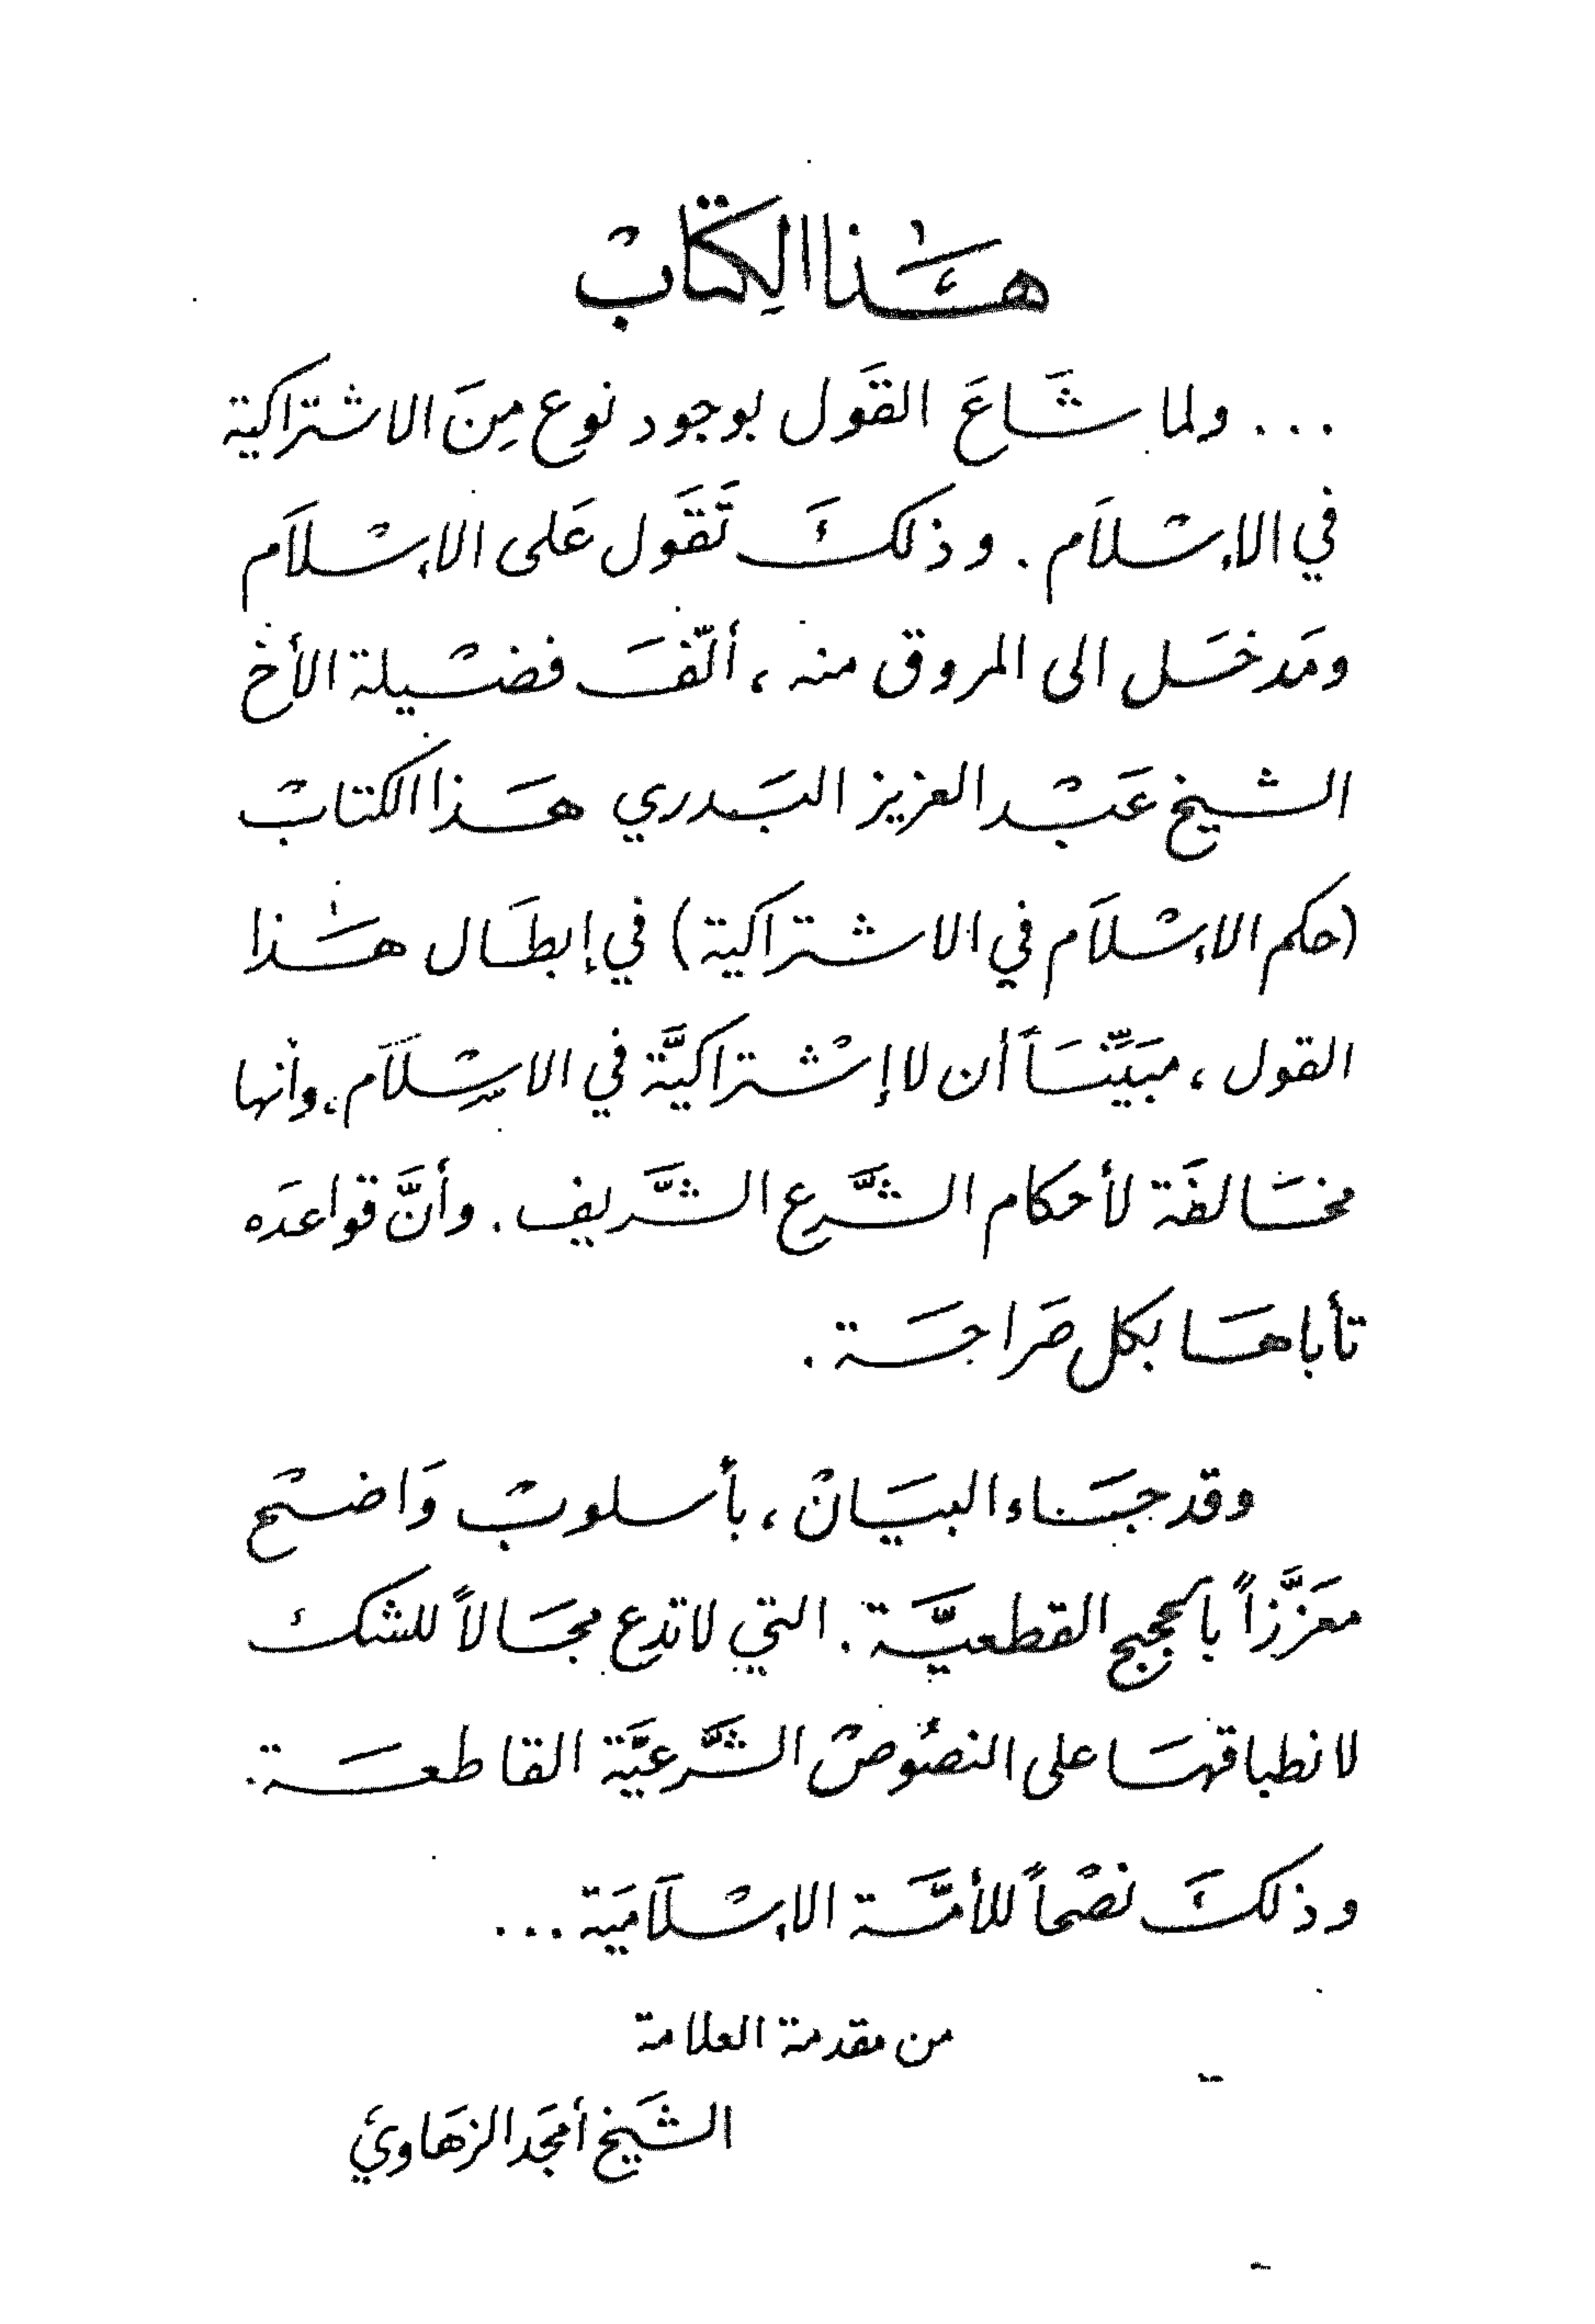 هٰذا الكِتَابْ
... ولما شَاعَ القَول بوجود نوع مِنَ الاشتراكية
في الاِسْلاَم . وذلكَ تَقَول عَلى الاِسْلاَم
ومَدخَل الى المروق منه ، ألّفَ فضْيلة الأخ
الشيخ عَبْد العزيز البَدري هَذا الكتابْ
(حكم الاِسْلاَم في الاشتراكية) في إبطَال هٰذا
القول ، مبَيِّنَاً أن لا إشْتراكيَّة في الاسْلاَم ، وأنها
مخَالفَة لأحكام الشَّرع الشَّريف . وأنَّ قواعدَه
تأباهَا بكل صَراحَة .
وقد جَاء البيَانْ ، بأسلوبْ وَاضْح
معَزَّزاً بالحجج القطعيَّة . التي لا تدع مجَالاً للشك
لانطباقهَا على النصُوصْ الشَّرعيَّة القاطعَة .
وذلكَ نصْحاً للأمَّة الاِسْلاَميَة ...
من مقدمة العلامة
الشَيخ أمجَد الزهَاوي